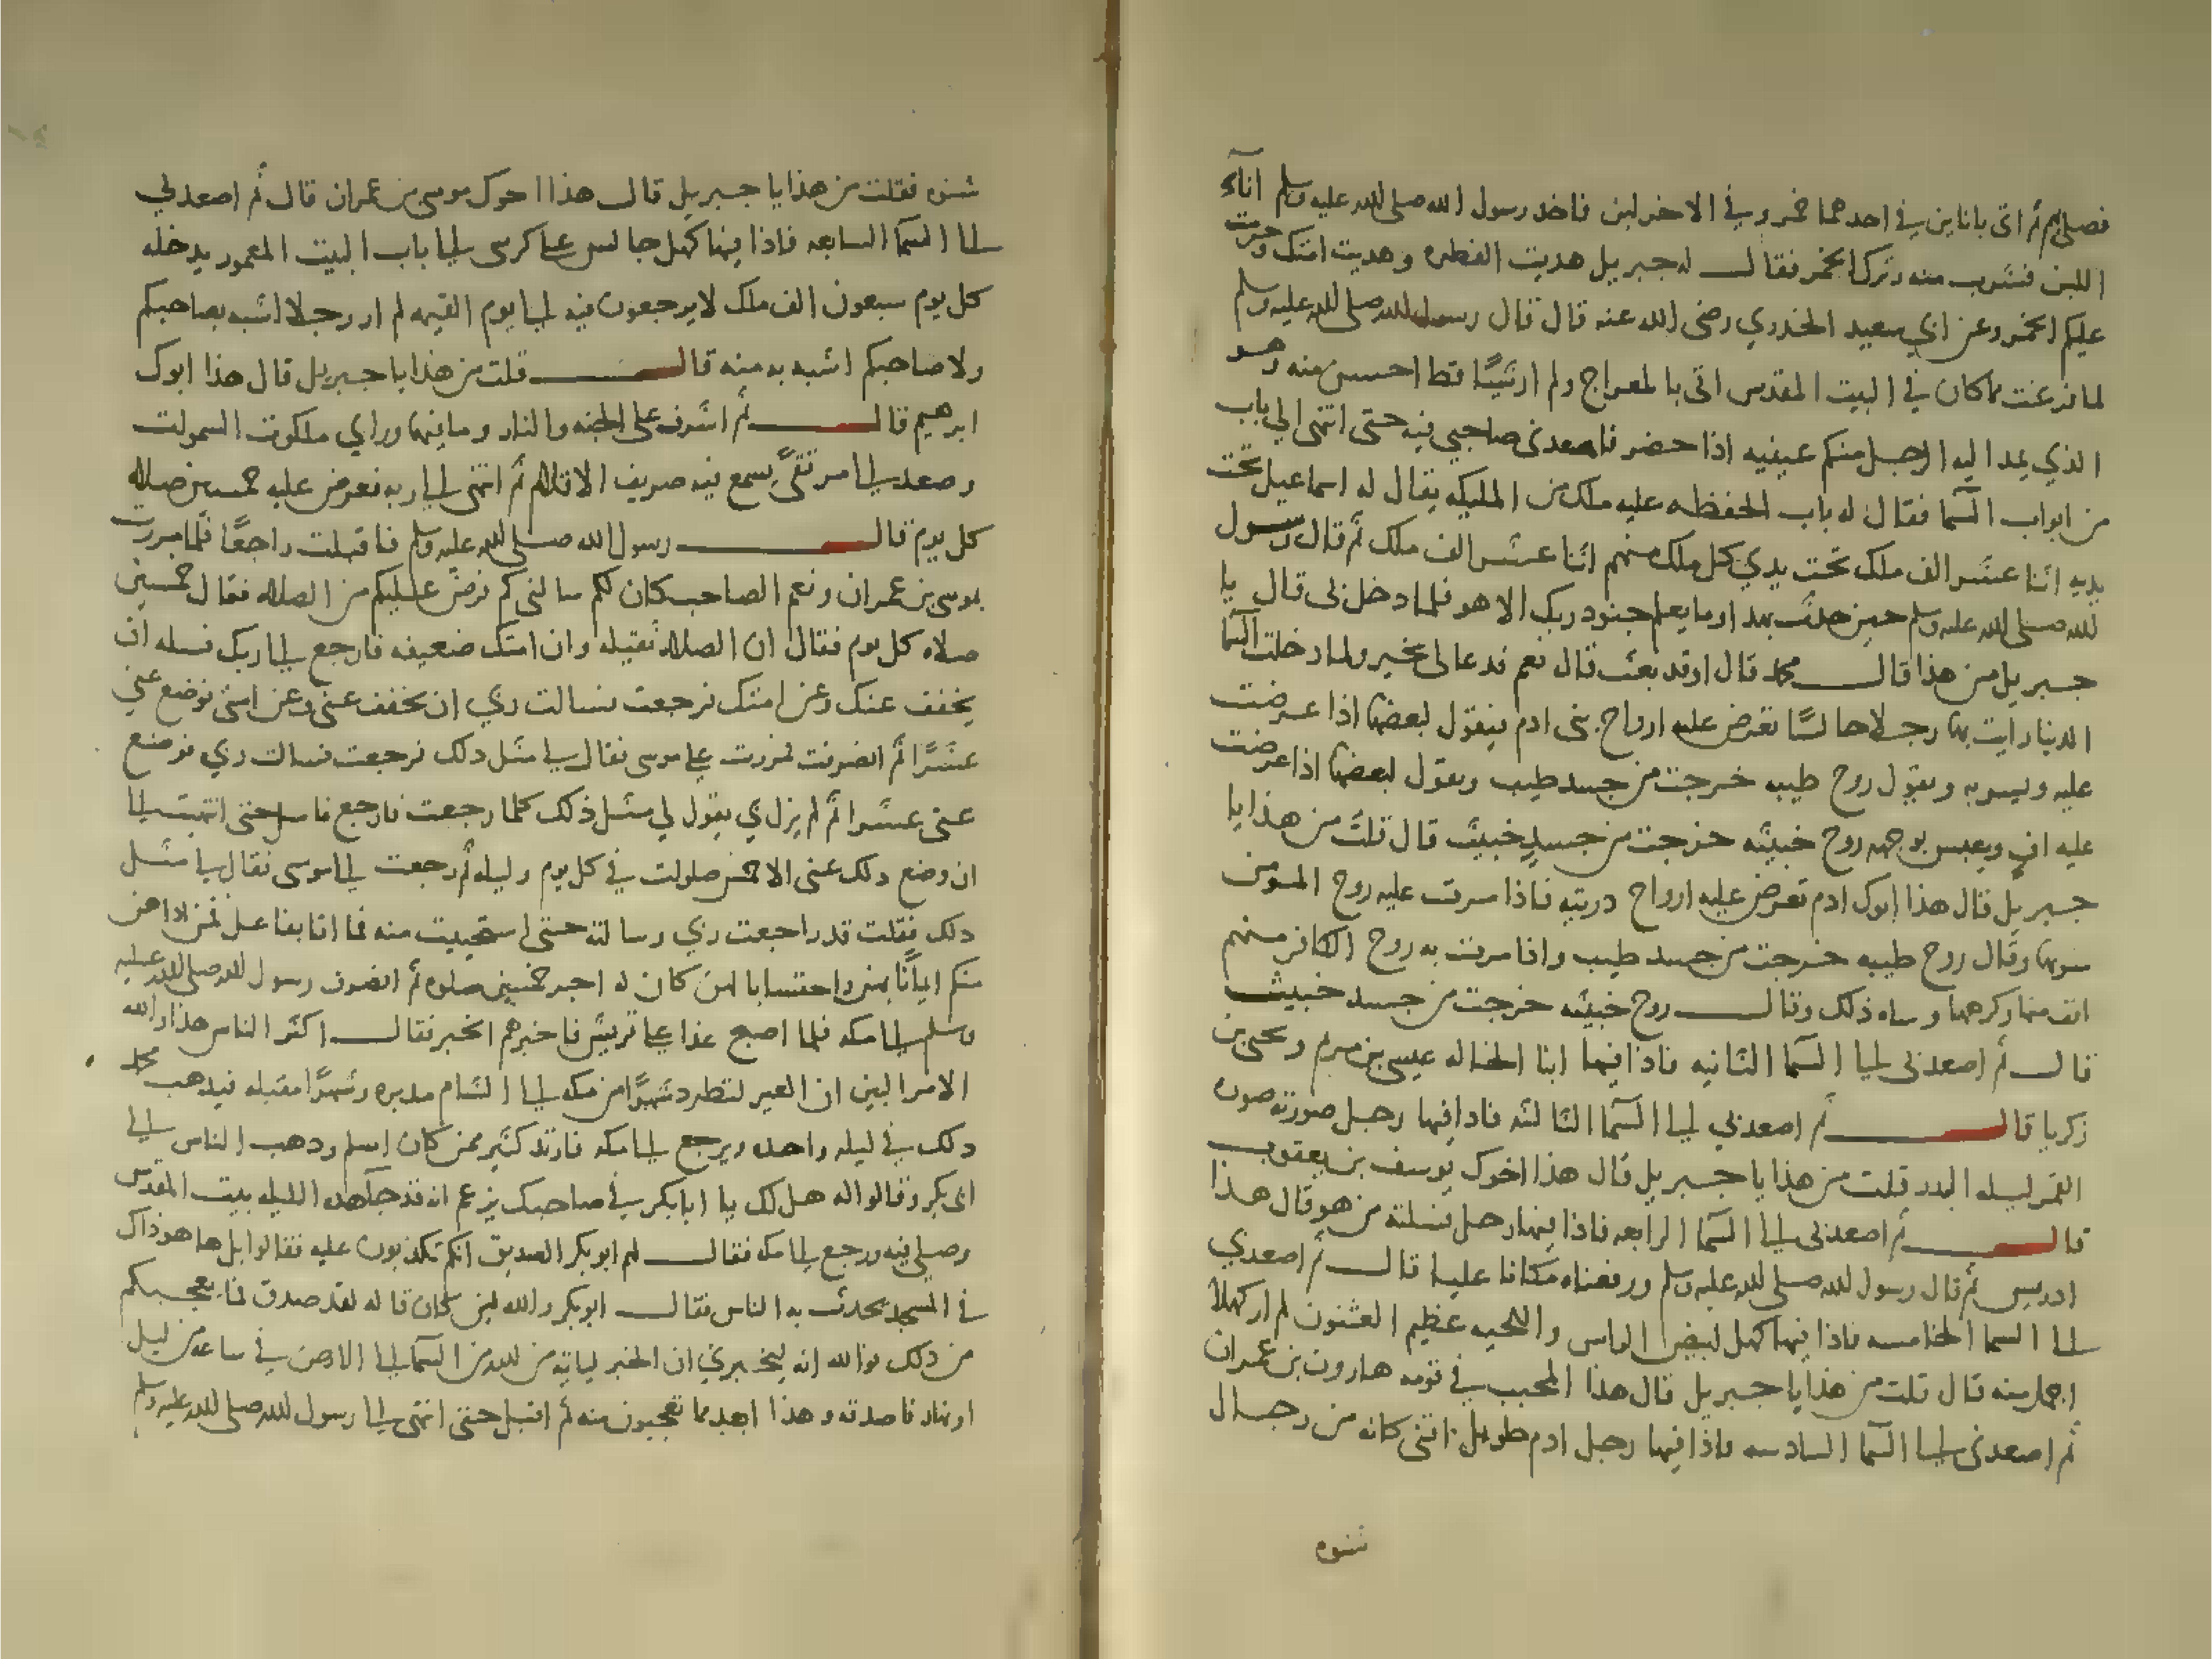 فصلى بهم ثم اتى باناين في احدهما خمر وفي الاخر لبن فاخد رسول الله صلى الله عليه وسلم انآء
اللبن فشرب منه وترك الخمر فقال له جبريل هديت الفطره وهديت امتك وحرمت
عليكم الخمر وعن ابي سعيد الخدري رضى الله عنه قال قال رسول الله صلى الله عليه وسلم
لما فرغت مما كان في البيت المقدس اتى بالمعراج ولم ار شيًا قط احسن منه وهو
الذي يمد اليه الرجل منكم عينيه اذا حضر فاصعدنى صاحبي فيه حتى انتهى الى باب
من ابواب السمآ فقال له باب الحفظه عليه ملك من المليكه يقال له اسماعيل تحت
يديه اثنا عشر الف ملك تحت يدي كل ملك منهم اثنا عشر الف ملك ثم قال رسول
الله صلى الله عليه وسلم حين حدث بهدا وما يعلم جنود ربك الا هو فلما دخل بى قال يا
جبريل من هذا قال محمد قال اوقد بعث قال نعم فدعا لى بخير ولما دخلت السمآ
الدنيا رايت بها رجلا جالسًا تعرض عليه ارواح بنى ادم فيقول لبعضها اذا عرضت
عليه ويسر به ويقول روح طيبه خرجت من جسد طيب ويقول لبعضها اذا عرضت
عليه افٍ ويعبس بوجهه روح خبيثه خرجت من جسدٍ خبيث قال قلت من هذا يا
جبريل قال هذا ابوك ادم تعرض عليه ارواح دريته فاذا مرت عليه روح المومن
سر بها وقال روح طيبه خرجت من جسد طيب واذا مرت به روح الكافر منهم
انف منها وكرهها وساه ذلك وقال روح خبيثه خرجت من جسد خبيث
قال ثم اصعدنى الى السمآ الثانيه فاذا فيها ابنا الخاله عيسى بن مريم ويحيى بن
زكريا قال ثم اصعدني الى السمآ الثالثه فادا فيها رجل صورته صورة
القمر ليله البدر قلت من هذا يا جبريل قال هذا اخوك يوسف بن يعقوب
قال ثم اصعدنى الى السمآ الرابعه فاذا فيها رجل فسلته من هو قال هذا
ادريس ثم قال رسول الله صلى الله عليه وسلم ورفعناه مكانا عليا قال ثم اصعدني
الى السما الخامسه فاذا فيها كهل ابيض الراس واللحيه عظيم العثنون لم ار كهلًا
اجمل منه قال قلت من هذا يا جبريل قال هذا المحبب في قومه هارون بن عمران
ثم اصعدنى الى السمآ السادسه فاذا فيها رجل ادم طويل اقنى كانه من رجال
شنوه
شنوه فقلت من هذا يا جبريل قال هذا اخوك موسى بن عمران قال ثم اصعدلى
الى السمآ السابعه فاذا فيها كهل جالس على كرسى الى باب البيت المعمور يدخله
كل يوم سبعون الف ملك لا يرجعون فيه الى يوم القيمه لم ار رجلا اشبه بصاحبكم
ولا صاحبكم اشبه به منه قال قلت من هذا يا جبريل قال هذا ابوك
ابرهيم قال ثم اشرف على الجنه والنار وما فيها وراي ملكوت السموات
وصعد الى مرتقىً يسمع فيه صريف الاقلام ثم انتهى الى ربه فعرض عليه خمسين صلاه
كل يوم قال رسول الله صلى الله عليه وسلم فاقبلت راجعًا فلما مررت
بموسى بن عمران ونعم الصاحب كان لكم سالنى كم فرض عليكم من الصلاه فقال خمسين
صلاه كل يوم فقال ان الصلاه ثقيله وان امتك ضعيفه فارجع الى ربك فسله ان
يخفف عنك وعن امتك فرجعت فسالت ربي ان يخفف عنى وعن امتى فوضع عنى
عشرًا ثم انصرفت فمررت على موسى فقال لي مثل دلك فرجعت فسالت ربي فوضع
عنى عشرا ثم لم يزل يقول لي مثل ذلك كلما رجعت فارجع فاسال حتى انتهيت الى
ان وضع دلك عنى الا خمس صلوات في كل يوم وليله ثم رجعت الى موسى فقال لي مثل
دلك فقلت قد راجعت ربي وسالته حتى استحييت منه فما انا بفاعل فمن اداهن
منكم ايمانًا بهن واحتسابا لهن كان له اجر خمسين صلوه ثم انصرف رسول الله صلى الله عليه
وسلم الى مكه فلما اصبح غدا على قريش فاخبرهم الخبر فقال اكثر الناس هذا والله
الامر البين ان العير لتطرد شهرًا من مكه الى الشام مدبره وشهرًا مقبله فيدهب محمد
دلك في ليله واحده ويرجع الى مكه فارتد كثير ممن كان اسلم ودهب الناس الى
ابى بكر وقالوا له هل لك يا ابا بكر في صاحبك يزعم انه قد جآ هده الليله بيت المقدس
وصلى فيه ورجع الى مكه فقال لهم ابو بكر الصديق انكم تكذبون عليه فقالوا بل ها هو ذاك
في المسجد يحدث به الناس فقال ابو بكر والله لين كان قاله لقد صدق فما يعجبكم
من دلك فوالله انه ليخبرني ان الخبر لياتيه من الله من السمآ الى الارض في ساعه من ليل
او نهار فاصدقه وهذا ابعد مما تعجبون منه ثم اقبل حتى انتهى الى رسول الله صلى الله عليه وسلم